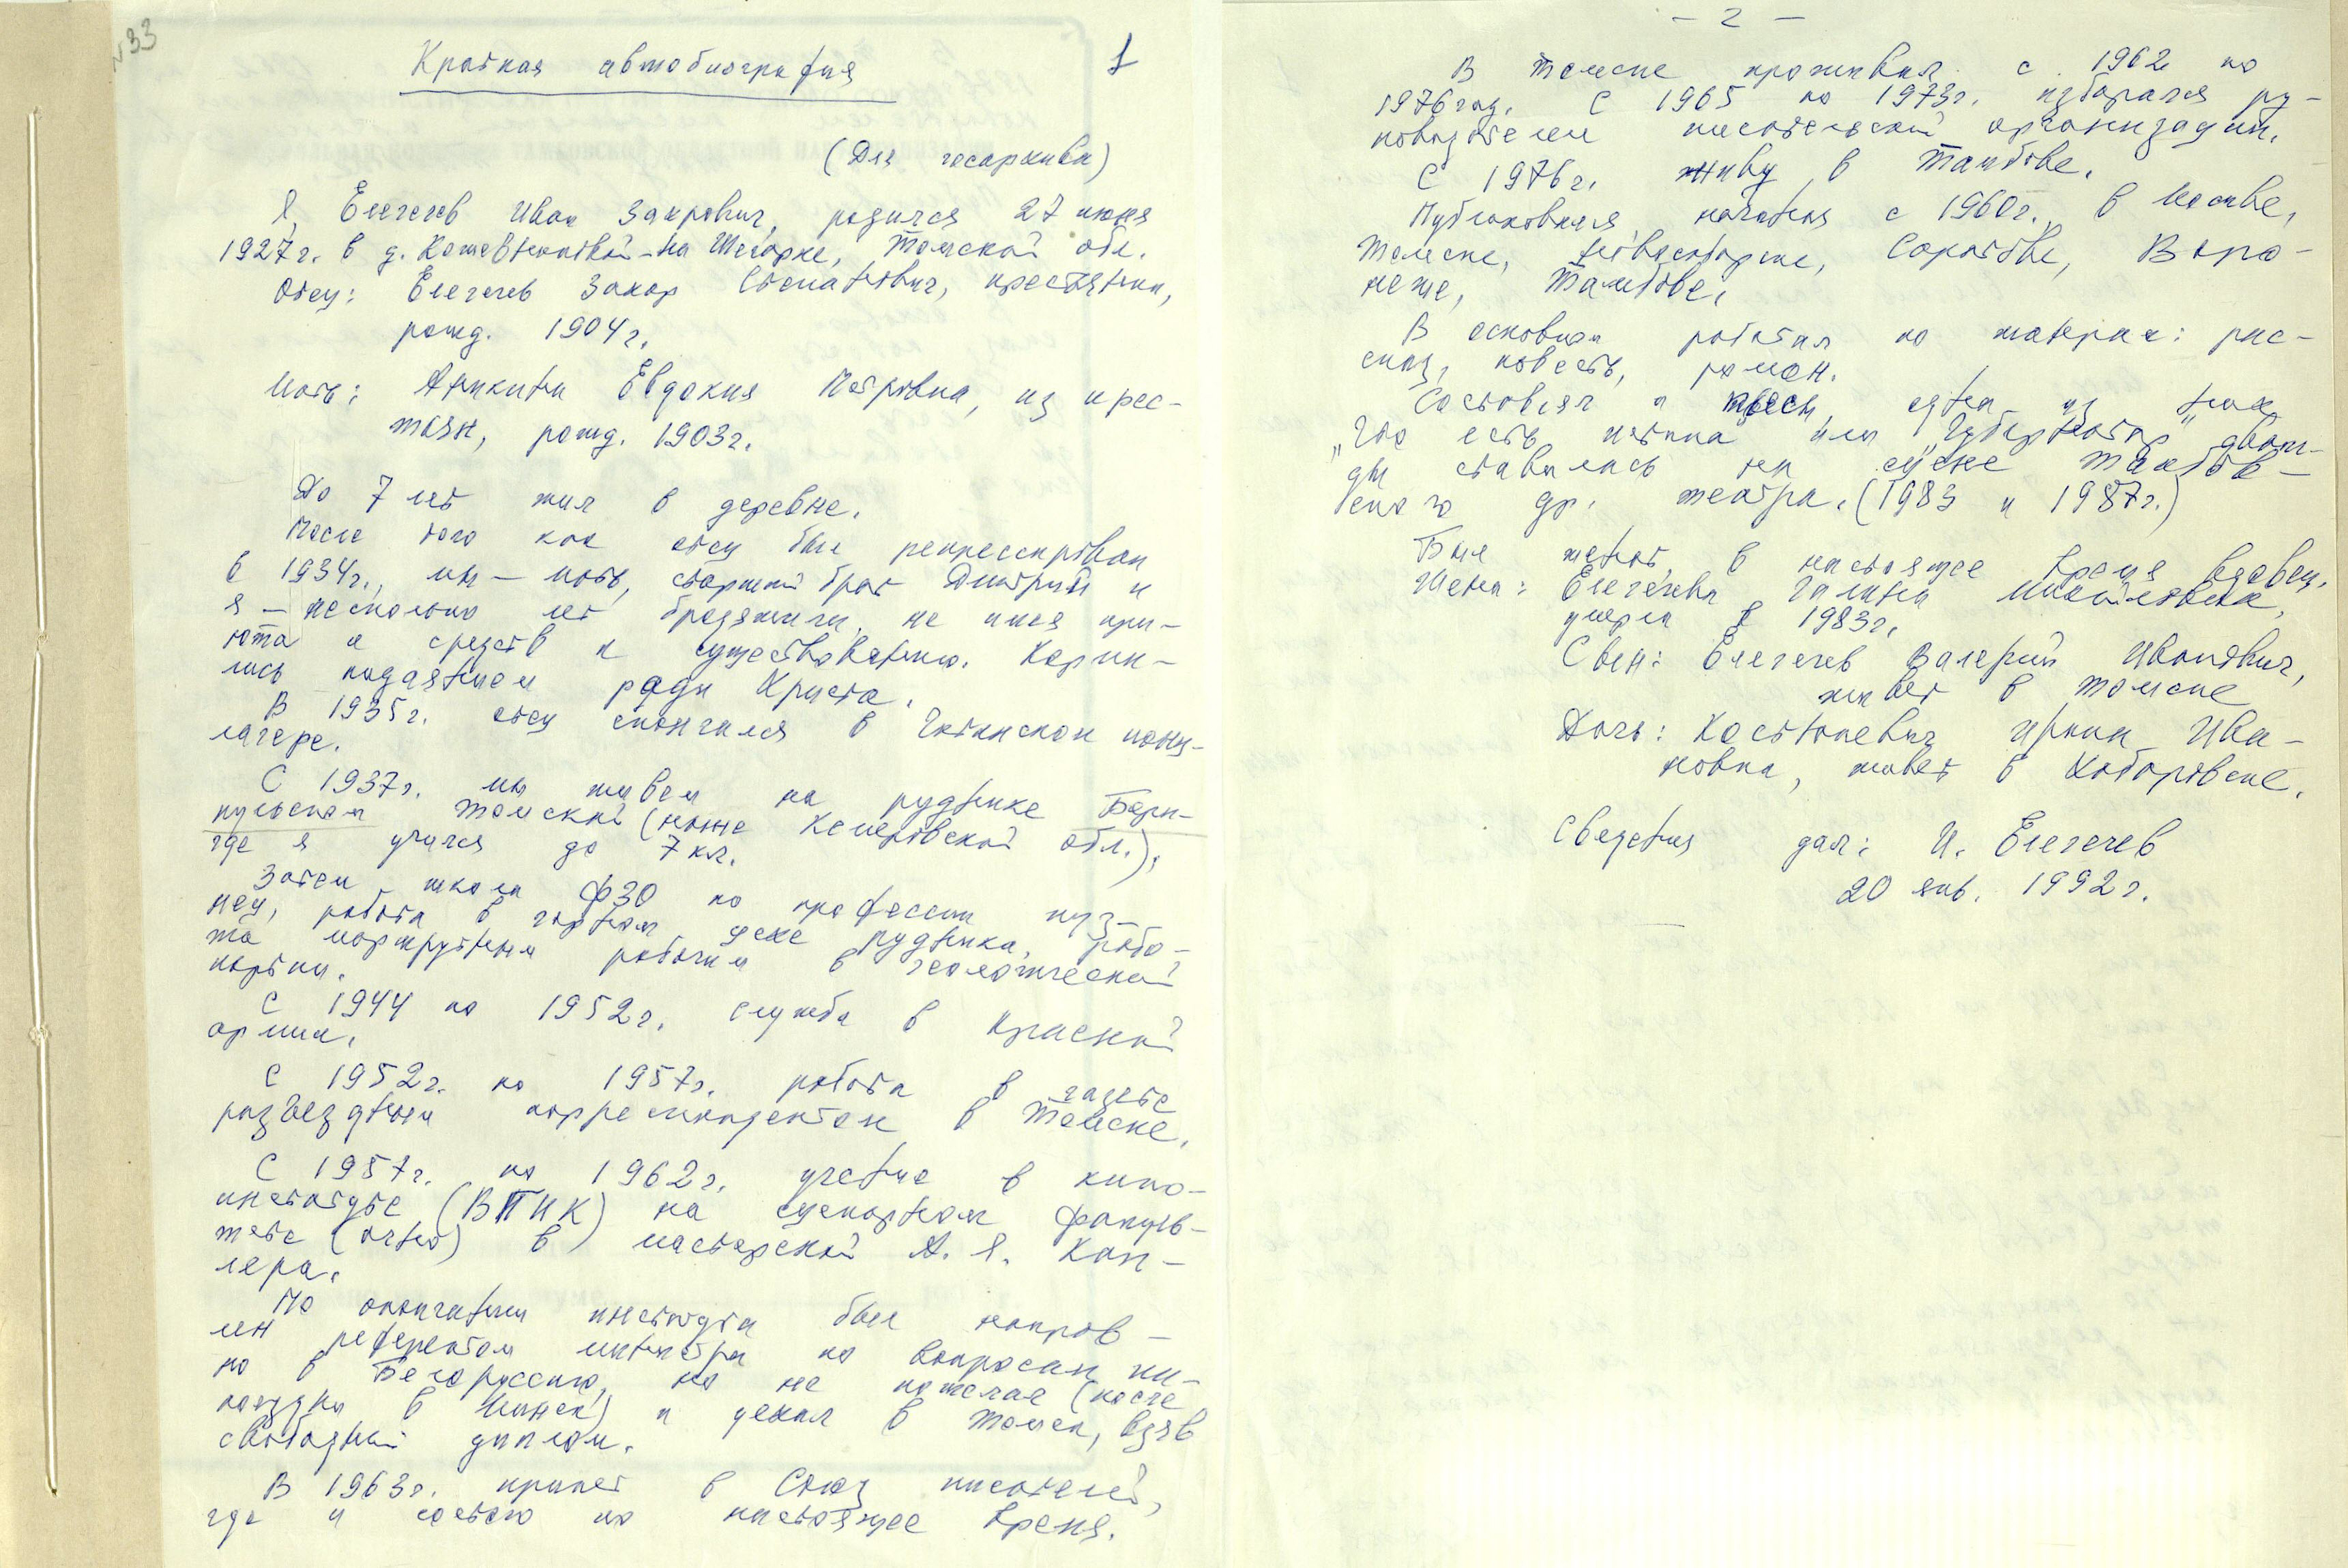 N 33
Краткая автобиография
1
(Для госархива)
Я, Елегечев Иван Захрович, родился 27 июня
1927г. в д. Кожевниковой-на Шегарке, Томской обл.
Отец: Елегечев Захар Евстигнеевич, крестьянин,
рожд. 1904г.
Мать: Аникина Евдокия Петровна, из крес-
тьян, рожд. 1903г.
До 7 лет жил в деревне.
После того как отец был репрессирован
в 1934г., мы – мать, старший брат Дмитрий и
я – несколько лет бродяжили, не имея при-
юта и средств к существованию. Корми-
лись подаянием ради Христа.
В 1935г. отец скончался в Читинском конц-
лагере.
С 1937г. мы живем на руднике Бери-
кульском Томской (ныне Кемеровской обл.),
где я учился до 7 кл.
Затем школа ФЗО по профессии куз-
нец, работа в горном цехе рудника, рабо-
та маршрутным рабочим в геологической
партии.
С 1944 по 1952г. служба в Красной
армии.
С 1952г. по 1957г. работа в газете
разъездным корреспондентом в Томске.
С 1957г. по 1962г. учение в кино-
институте (ВГИК) на сценарном факуль-
тете (очно) в мастерской А. Я. Кап-
лера.
По окончании института был направ-
лен референтом министра по вопросам ки-
но в Белоруссию, но не пожелал (после
поездки в Минск) и уехал в Томск, взяв
свободный диплом.
В 1963г. принят в Союз писателей,
где и состою по настоящее время.
– 2 –
В Томске проживал с 1962 по
1976 год. С 1965 по 1973г. избирался ру-
ководителем писательской организации.
С 1976г. живу в Тамбове.
Публиковался начиная с 1960г. в Москве,
Томске, Новосибирске, Саратове, Воро-
неже, Тамбове.
В основном работал по жанрам: рас-
сказ, повесть, роман.
Составлял и пьесы, одна из них
„Что есть истина" или „Губернатор" дваж-
ды ставилась на сцене Тамбов-
ского др. театра. (1983 и 1987г.)
Был женат, в настоящее время вдовец.
Жена: Елегечева Галина Михайловна,
умерла в 1983г.
Сын: Елегечев Валерий Иванович,
живет в Томске
Дочь: Костюкевич Ирина Ива-
новна, живет в Хабаровске.
Сведения дал: И. Елегечев
20 янв. 1992г.